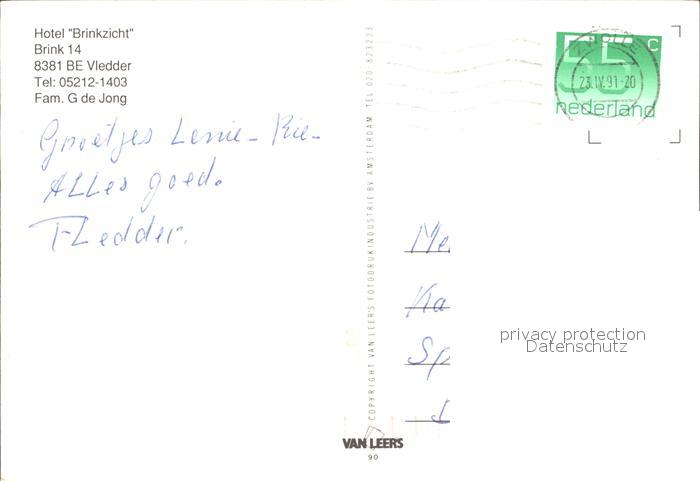 Hotel "Brinkzicht"
Brink 14
8381 BE Vledder
Tel: 05212-1403
Fam. G de Jong
Groetjes Lenie - Rie -
Alles goed.
Fledder.
COPYRIGHT VAN LEER'S FOTODRUKINDUSTRIE BV AMSTERDAM TEL 020 823223
55 C
nederland
ZWOLLE
23.IV.91-20
Me
Ka
Sp
privacy protection
Datenschutz
VAN LEERS
90